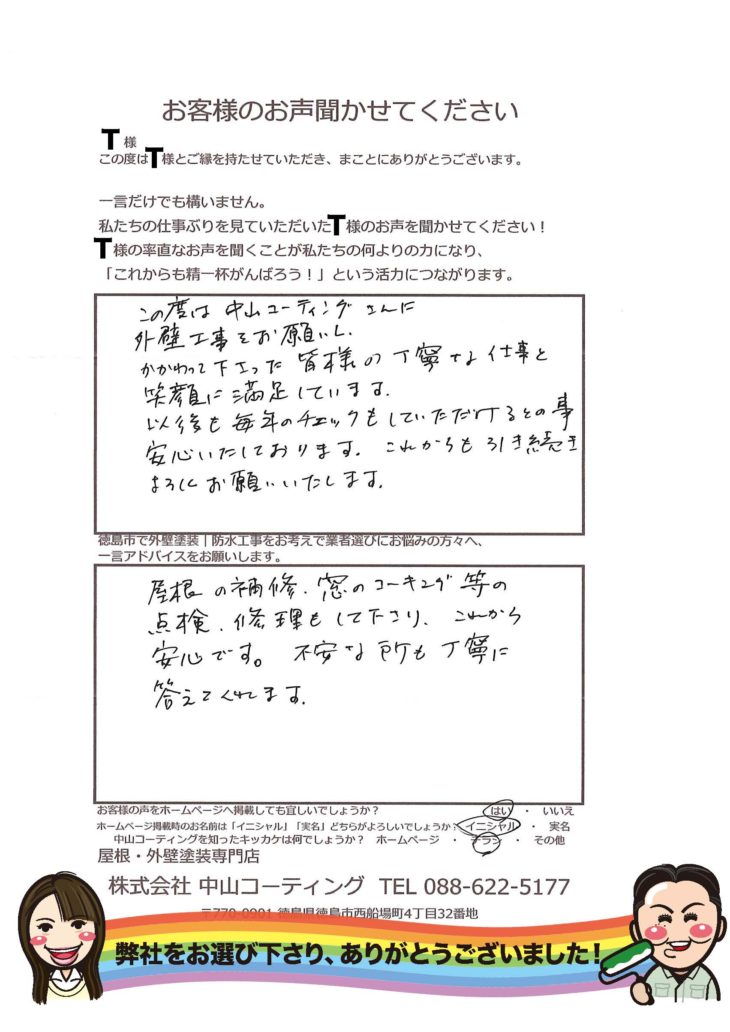 お客様のお声聞かせてください
T 様
この度はT様とご縁を持たせていただき、まことにありがとうございます。
一言だけでも構いません。
私たちの仕事ぶりを見ていただいたT様のお声を聞かせてください！
T様の率直なお声を聞くことが私たちの何よりの力になり、
「これからも精一杯がんばろう！」という活力につながります。
この度は中山コーティングさんに
外壁工事をお願いし、
かかわって下さった皆様の丁寧な仕事と
笑顔に満足しています。
以後も毎年のチェックもしていただけるとの事
安心いたしております。これからも引き続き
よろしくお願いいたします。
徳島市で外壁塗装｜防水工事をお考えで業者選びにお悩みの方々へ、
一言アドバイスをお願いします。
屋根の補修、窓のコーキング等の
点検、修理もして下さり、これから
安心です。不安な所も丁寧に
答えてくれます。
お客様の声をホームページへ掲載しても宜しいでしょうか？ はい ・ いいえ
ホームページ掲載時のお名前は「イニシャル」「実名」どちらがよろしいでしょうか？ イニシャル ・ 実名
中山コーティングを知ったキッカケは何でしょうか？ ホームページ ・ チラシ ・ その他
屋根・外壁塗装専門店
株式会社 中山コーティング TEL 088-622-5177
〒770-0901 徳島県徳島市西船場町4丁目32番地
弊社をお選び下さり、ありがとうございました！